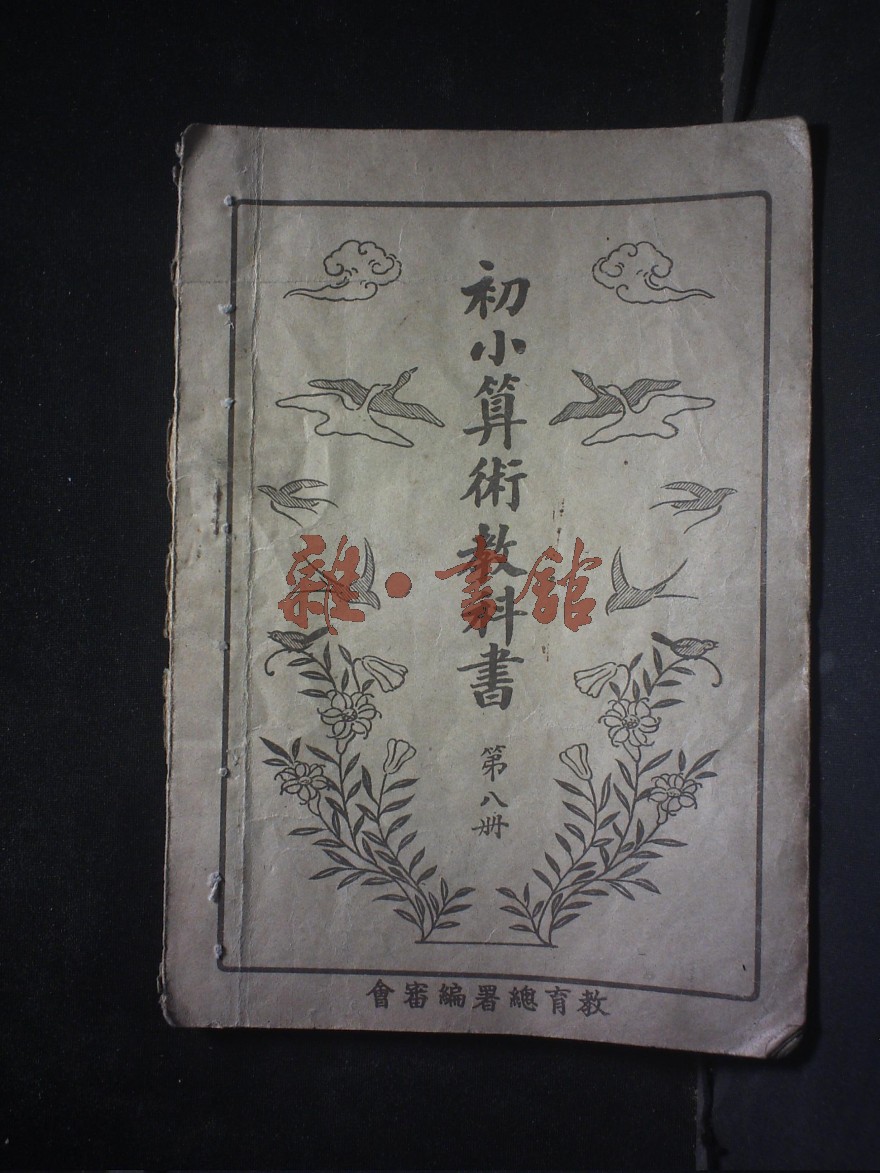 初小算術教科書
第八冊
教育總署編審會
雜·書館